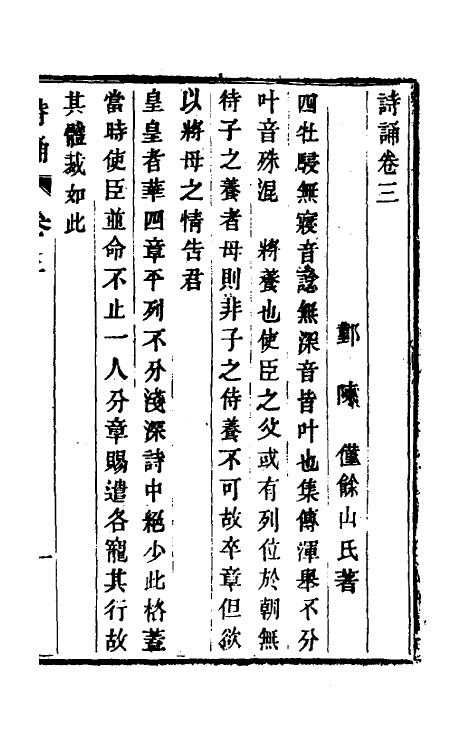 詩誦卷三
鄞 陳 僅餘山氏著
四牡駸無寢音諗無深音皆叶也集傳渾舉不分
叶音殊混 將養也使臣之父或有列位於朝無
待子之養者母則非子之侍養不可故卒章但欲
以將母之情告君
皇皇者華四章平列不分淺深詩中絕少此格蓋
當時使臣並命不止一人分章賜遣各寵其行故
其體裁如此
詩誦 卷三 一